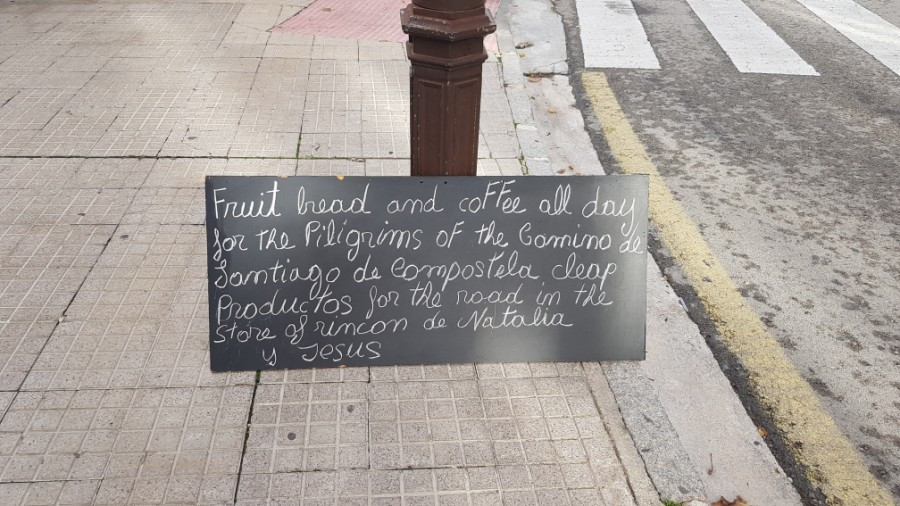 Fruit bread and coffee all day
for the Piligrims of the Camino de
Santiago de Compostela cleap
Productos for the road in the
store of rincon de Natalia
y Jesus